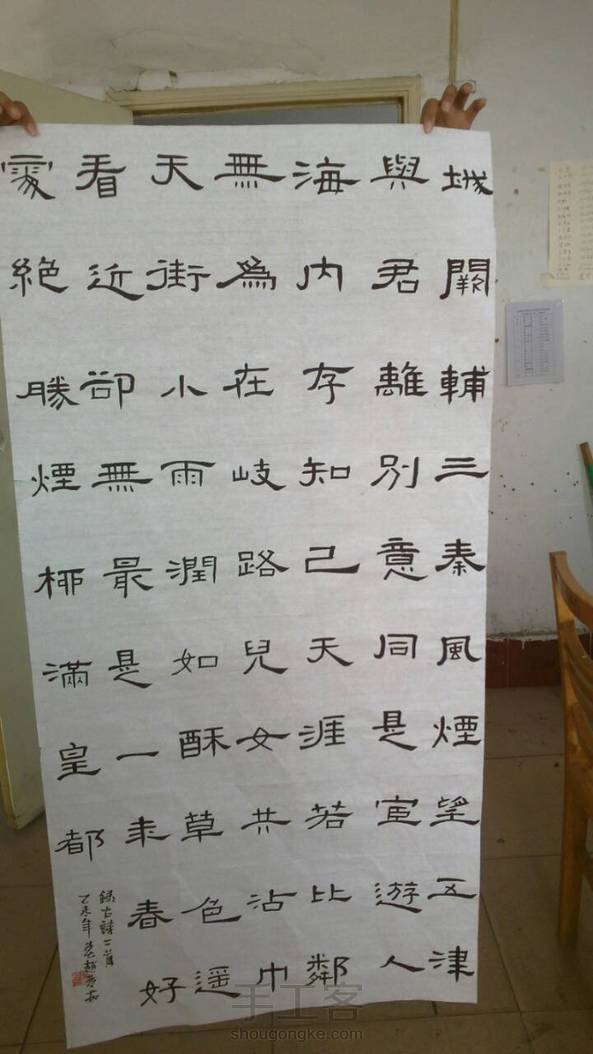 城闕輔三秦風煙望五津
與君離別意同是宦遊人
海内存知己天涯若比鄰
無爲在岐路兒女共沾巾
天街小雨潤如酥草色遥
看近卻無最是一年春好
處絕勝煙柳滿皇都
錄古詩二首
乙未年
手工客
shougongke.com